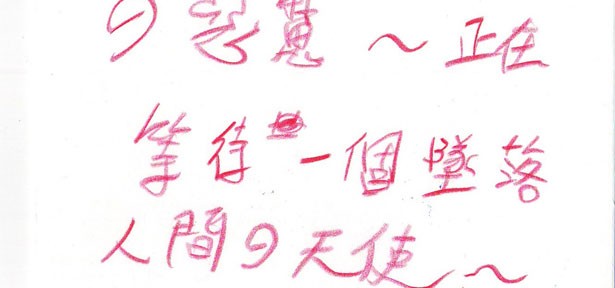 の ～ 正在
等待一個墜落
人間の天使～